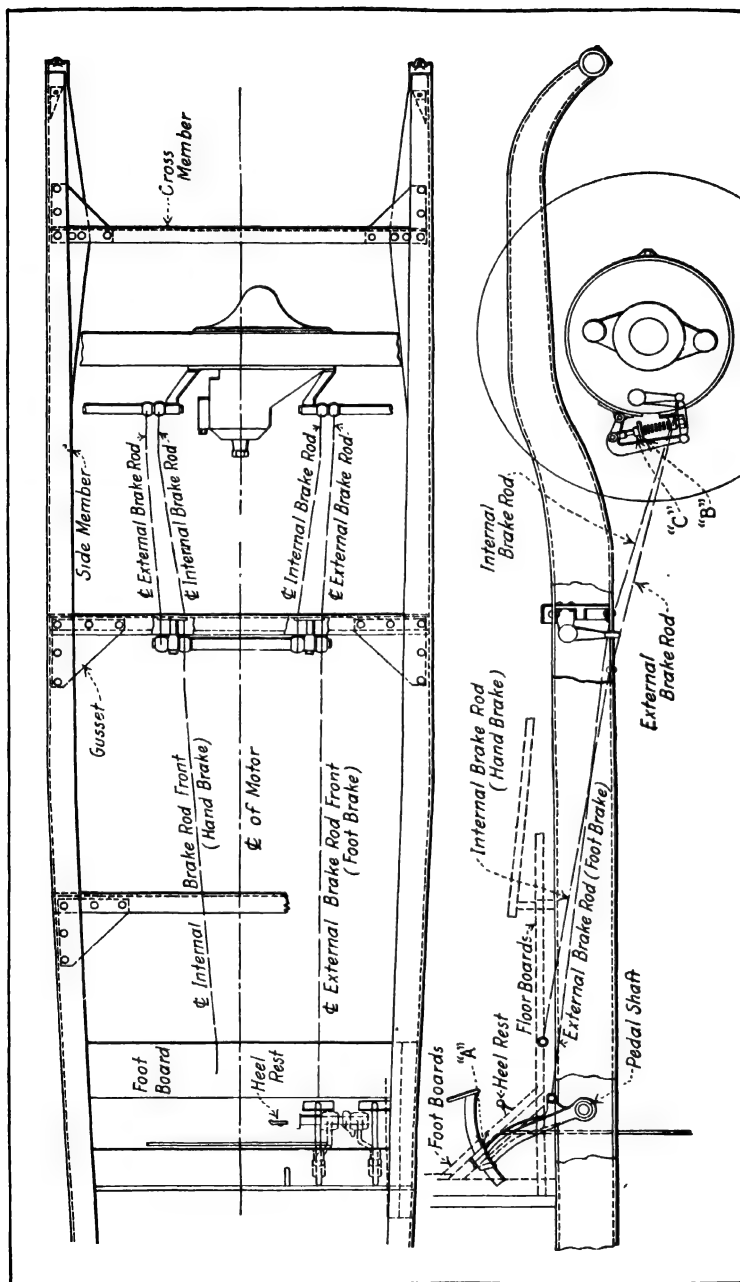 Cross
Member
Side Member
℄ External Brake Rod
℄ Internal Brake Rod
℄ Internal Brake Rod
℄ External Brake Rod
Gusset
℄ Internal Brake Rod Front
(Hand Brake)
℄ of Motor
℄ External Brake Rod Front
(Foot Brake)
Foot
Board
Heel
Rest
Internal
Brake Rod
"C"
"B"
External
Brake Rod
Internal Brake Rod
(Hand Brake)
Floor Boards
External Brake Rod (Foot Brake)
Foot Boards
"A"
Heel Rest
Pedal Shaft